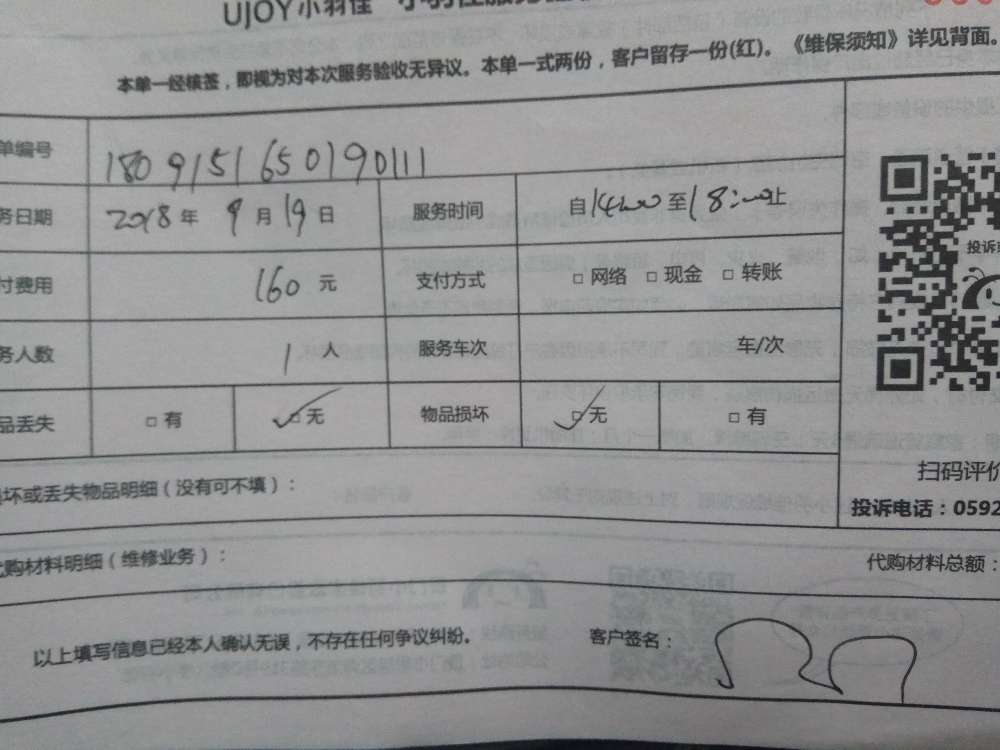 UJOY小羽佳
本单一经核签，即视为对本次服务验收无异议。本单一式两份，客户留存一份(红)。《维保须知》详见背面。
单编号 1809151650190111
务日期 2018年 9月19日 服务时间 自14:00至18:00止
付费用 160元 支付方式 □网络 □现金 □转账
务人数 1人 服务车次 车/次
品丢失 □有 ☑无 物品损坏 ☑无 □有
投诉
扫码评价
坏或丢失物品明细（没有可不填）：
投诉电话：0592
购材料明细（维修业务）：
代购材料总额：
以上填写信息已经本人确认无误，不存在任何争议纠纷。 客户签名：